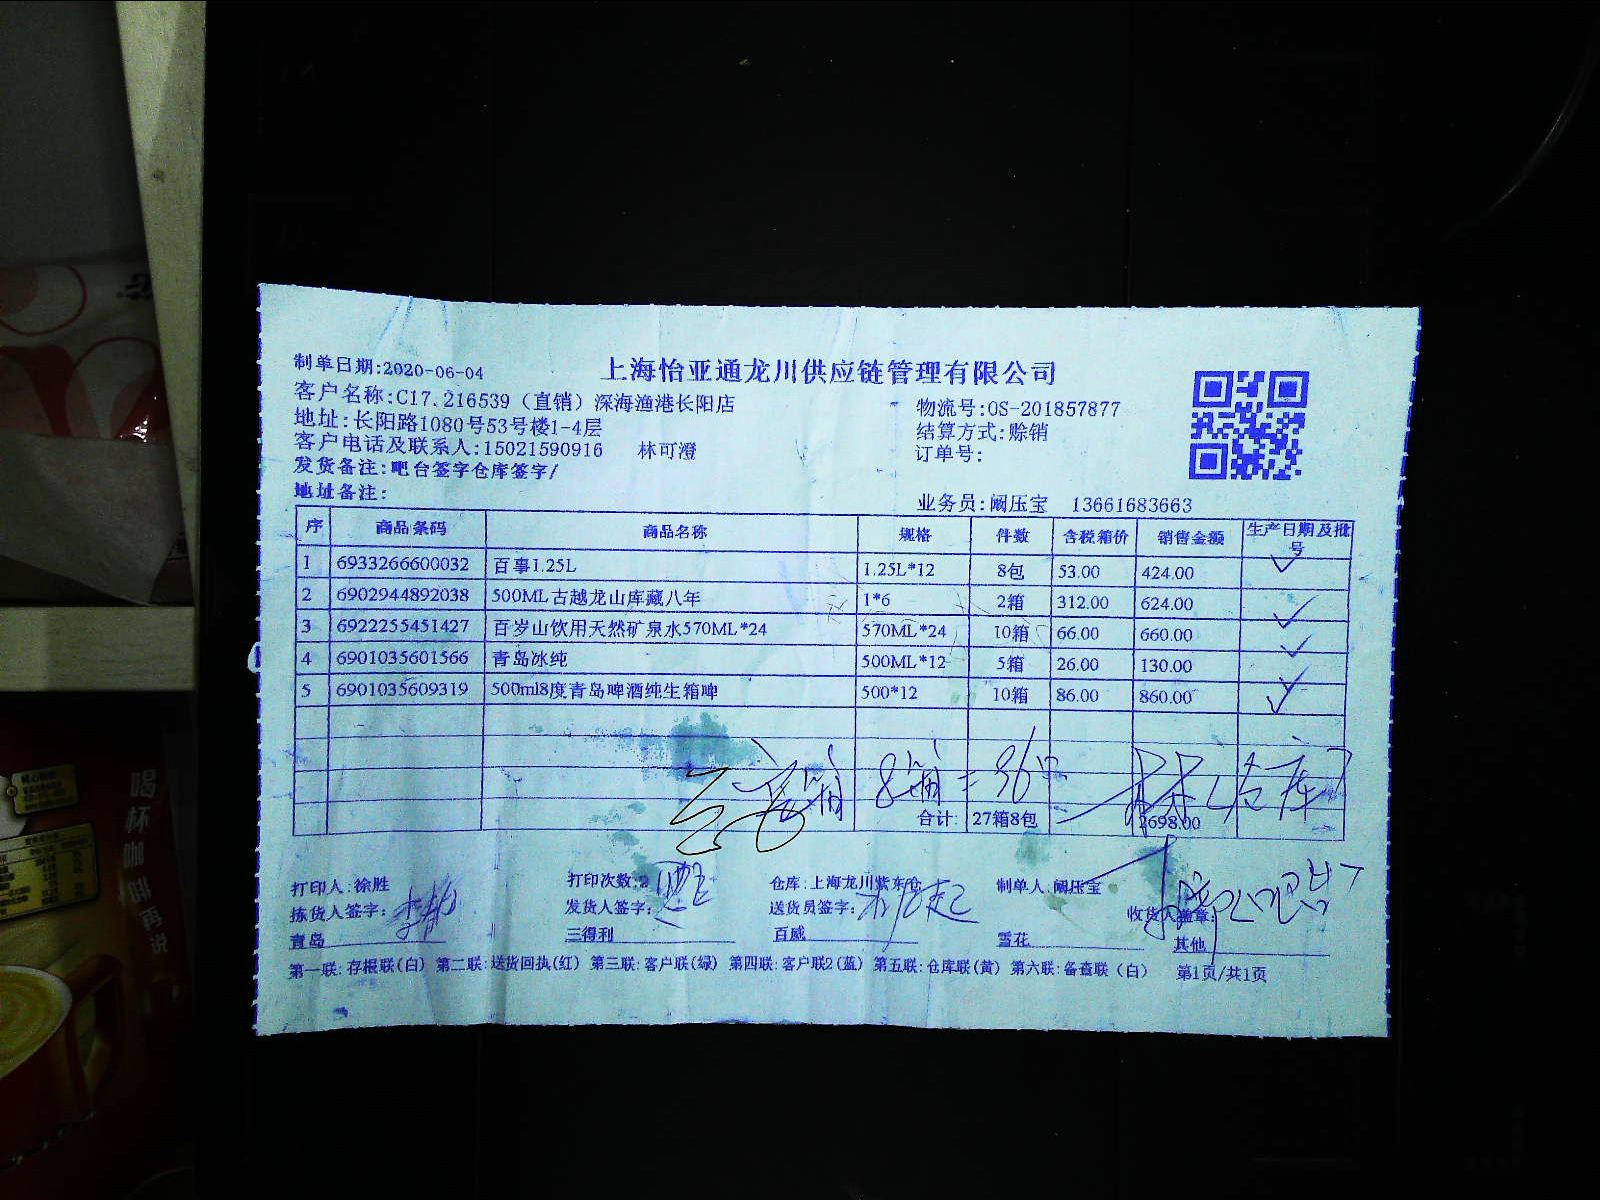 制单日期:2020-06-04
上海怡亚通龙川供应链管理有限公司
客户名称:C17.216539（直销）深海渔港长阳店
物流号:OS-201857877
地址:长阳路1080号53号楼1-4层
结算方式:赊销
客户电话及联系人:15021590916 林可澄
订单号:
发货备注:吧台签字仓库签字/
地址备注:
业务员:阚压宝 13661683663
序 商品条码 商品名称 规格 件数 含税箱价 销售金额 生产日期及批号
1 6933266600032 百事1.25L 1.25L*12 8包 53.00 424.00
2 6902944892038 500ML古越龙山库藏八年 1*6 2箱 312.00 624.00
3 6922255451427 百岁山饮用天然矿泉水570ML*24 570ML*24 10箱 66.00 660.00
4 6901035601566 青岛冰纯 500ML*12 5箱 26.00 130.00
5 6901035609319 500ml8度青岛啤酒纯生箱啤 500*12 10箱 86.00 860.00
8箱=96 仓库
合计: 27箱8包 2698.00
打印人:徐胜 打印次数:2 仓库:上海龙川紫东仓 制单人:阚压宝
拣货人签字: 发货人签字: 送货员签字: 收货人盖章:
青岛 三得利 百威 雪花 其他
第一联:存根联(白) 第二联:送货回执(红) 第三联:客户联(绿) 第四联:客户联2(蓝) 第五联:仓库联(黄) 第六联:备查联（白） 第1页/共1页
喝杯咖啡再说